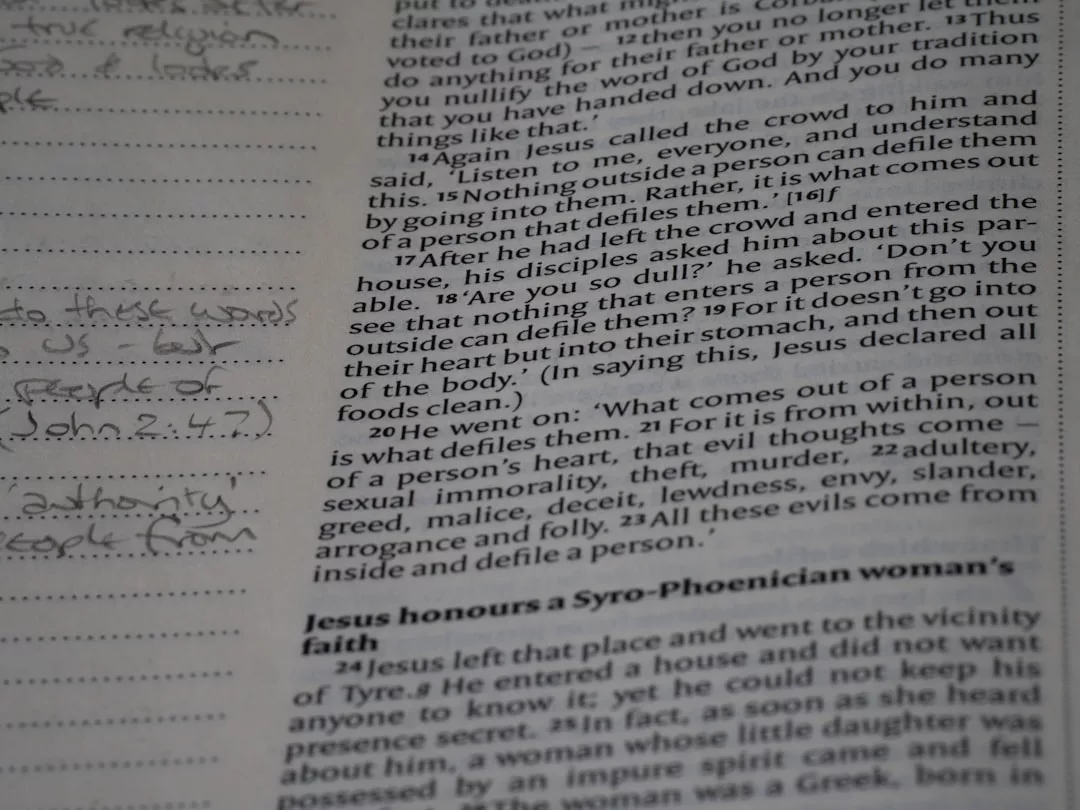 true religion
& lades
to these words
us - but
people of
(John 2:47)
'authority'
people from
put to
clares that what
their father or mother is Corban
voted to God) – 12 then you no longer let them
do anything for their father or mother. 13 Thus
you nullify the word of God by your tradition
that you have handed down. And you do many
things like that.'
14 Again Jesus called the crowd to him and
said, 'Listen to me, everyone, and understand
this. 15 Nothing outside a person can defile them
by going into them. Rather, it is what comes out
of a person that defiles them.' [16]f
17 After he had left the crowd and entered the
house, his disciples asked him about this par-
able. 18 'Are you so dull?' he asked. 'Don't you
see that nothing that enters a person from the
outside can defile them? 19 For it doesn't go into
their heart but into their stomach, and then out
of the body.' (In saying this, Jesus declared all
foods clean.)
20 He went on: 'What comes out of a person
is what defiles them. 21 For it is from within, out
of a person's heart, that evil thoughts come –
sexual immorality, theft, murder, 22 adultery,
greed, malice, deceit, lewdness, envy, slander,
arrogance and folly. 23 All these evils come from
inside and defile a person.'
Jesus honours a Syro-Phoenician woman's
faith
24 Jesus left that place and went to the vicinity
of Tyre.g He entered a house and did not want
anyone to know it; yet he could not keep his
presence secret. 25 In fact, as soon as she heard
about him, a woman whose little daughter was
possessed by an impure spirit came and fell
The woman was a Greek, born in